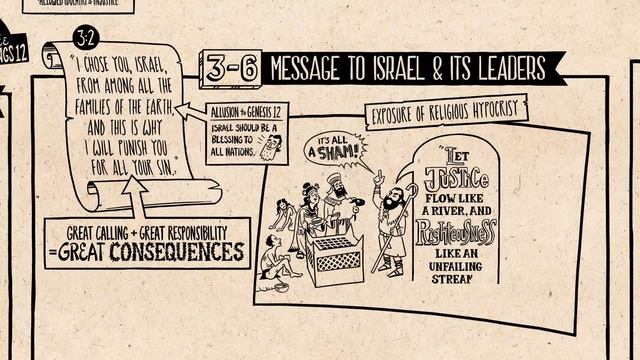 ALLOWED IDOLATRY & INJUSTICE
NGS 12
3:2
"I CHOSE YOU, ISRAEL,
FROM AMONG ALL THE
FAMILIES OF THE EARTH
AND THIS IS WHY
I WILL PUNISH YOU
FOR ALL YOUR SIN."
GREAT CALLING + GREAT RESPONSIBILITY
=GREAT CONSEQUENCES
ALLUSION TO GENESIS 12
ISRAEL SHOULD BE A
BLESSING TO
ALL NATIONS.
3-6 MESSAGE TO ISRAEL & ITS LEADERS
EXPOSURE OF RELIGIOUS HYPOCRISY
IT'S ALL
A SHAM!
"LET
JUSTICE
FLOW LIKE
A RIVER, AND
RIGHTEOUSNESS
LIKE AN
UNFAILING
STREAM